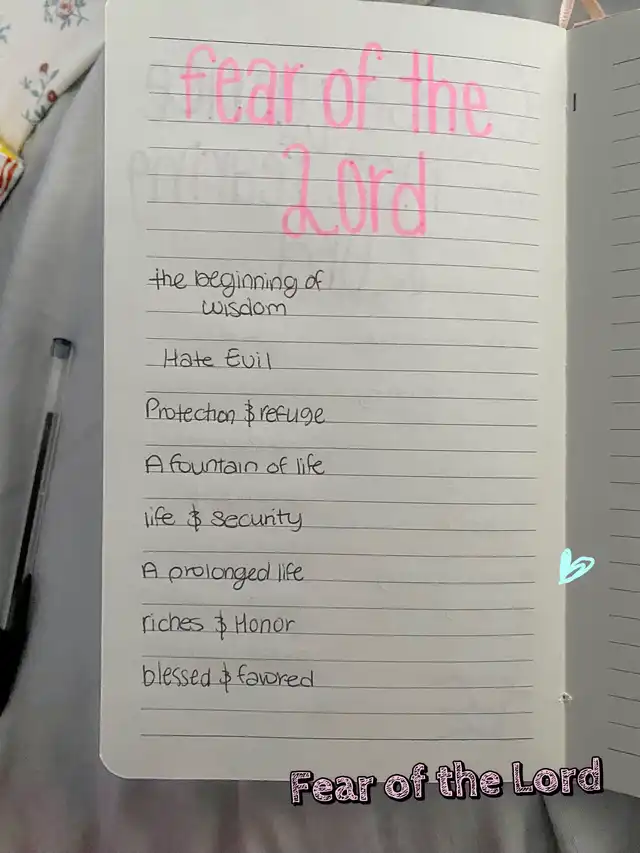 fear of the
Lord
the beginning of
wisdom
Hate Evil
Protection & refuge
A fountain of life
life & security
A prolonged life
riches & Honor
blessed & favored
Fear of the Lord